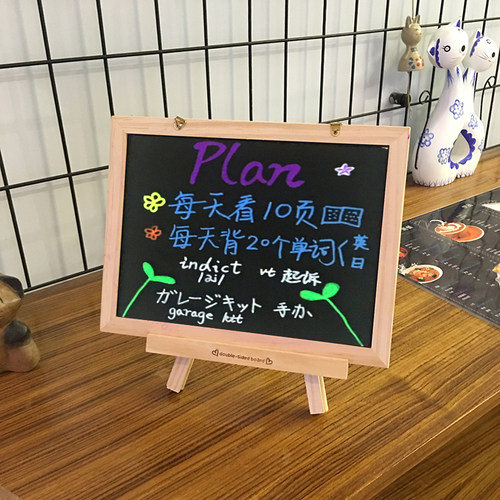 Plan
每天看10页
每天背20个单词(英
日
indict vt 起诉
[ai]
ガレージキット 手办
garage kit
double-sided board